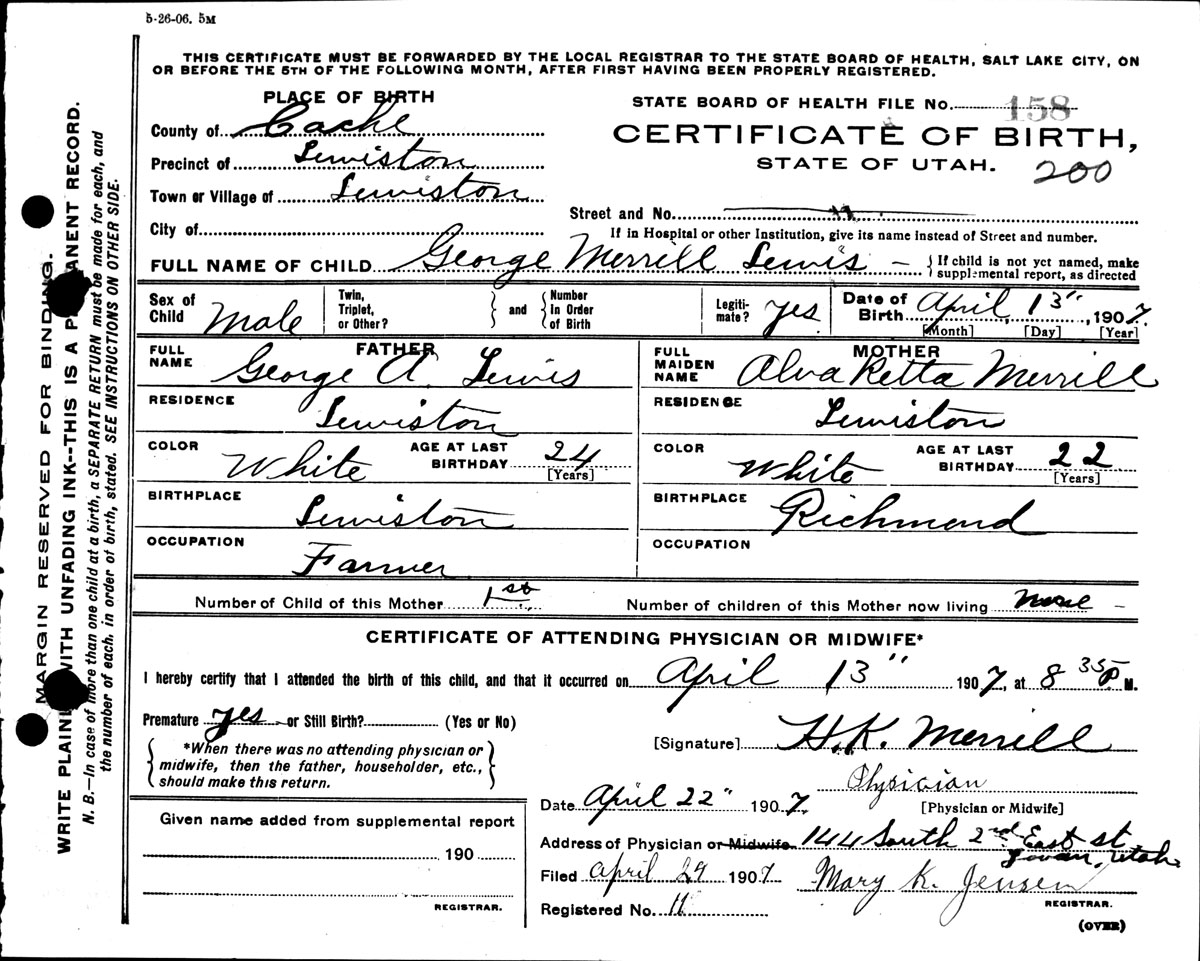 5-26-06. 5M
THIS CERTIFICATE MUST BE FORWARDED BY THE LOCAL REGISTRAR TO THE STATE BOARD OF HEALTH, SALT LAKE CITY, ON
OR BEFORE THE 5TH OF THE FOLLOWING MONTH, AFTER FIRST HAVING BEEN PROPERLY REGISTERED.
PLACE OF BIRTH
STATE BOARD OF HEALTH FILE No. 158
County of Cache
CERTIFICATE OF BIRTH,
Precinct of Lewiston
STATE OF UTAH. 200
Town or Village of Lewiston
Street and No. "
City of
If in Hospital or other Institution, give its name instead of Street and number.
FULL NAME OF CHILD George Merrill Lewis – { If child is not yet named, make
supplemental report, as directed
Sex of Child Male
Twin, Triplet, or Other? } and { Number In Order of Birth
Legiti-mate? yes
Date of Birth April 13", 1907.
[Month] [Day] [Year]
FATHER
FULL NAME George A. Lewis
RESIDENCE Lewiston
COLOR White AGE AT LAST BIRTHDAY 24
[Years]
BIRTHPLACE Lewiston
OCCUPATION Farmer
MOTHER
FULL MAIDEN NAME Alva Retta Merrill
RESIDENCE Lewiston
COLOR White AGE AT LAST BIRTHDAY 22
[Years]
BIRTHPLACE Richmond
OCCUPATION
Number of Child of this Mother 1st Number of children of this Mother now living none –
CERTIFICATE OF ATTENDING PHYSICIAN OR MIDWIFE*
I hereby certify that I attended the birth of this child, and that it occurred on April 13" 1907, at 8 35 P M.
Premature yes or Still Birth? (Yes or No)
{ *When there was no attending physician or
midwife, then the father, householder, etc.,
should make this return. }
[Signature] H.K. Merrill
Physician
[Physician or Midwife]
Date April 22" 1907.
Given name added from supplemental report
190
REGISTRAR.
Address of Physician or Midwife. 144 South 2nd East st
Logan, Utah.
Filed April 29 1907 Mary K. Jensen
REGISTRAR.
Registered No. 11
(OVER)
MARGIN RESERVED FOR BINDING.
WRITE PLAINLY WITH UNFADING INK--THIS IS A PERMANENT RECORD.
N. B.—In case of more than one child at a birth, a SEPARATE RETURN must be made for each, and
the number of each, in order of birth, stated. SEE INSTRUCTIONS ON OTHER SIDE.